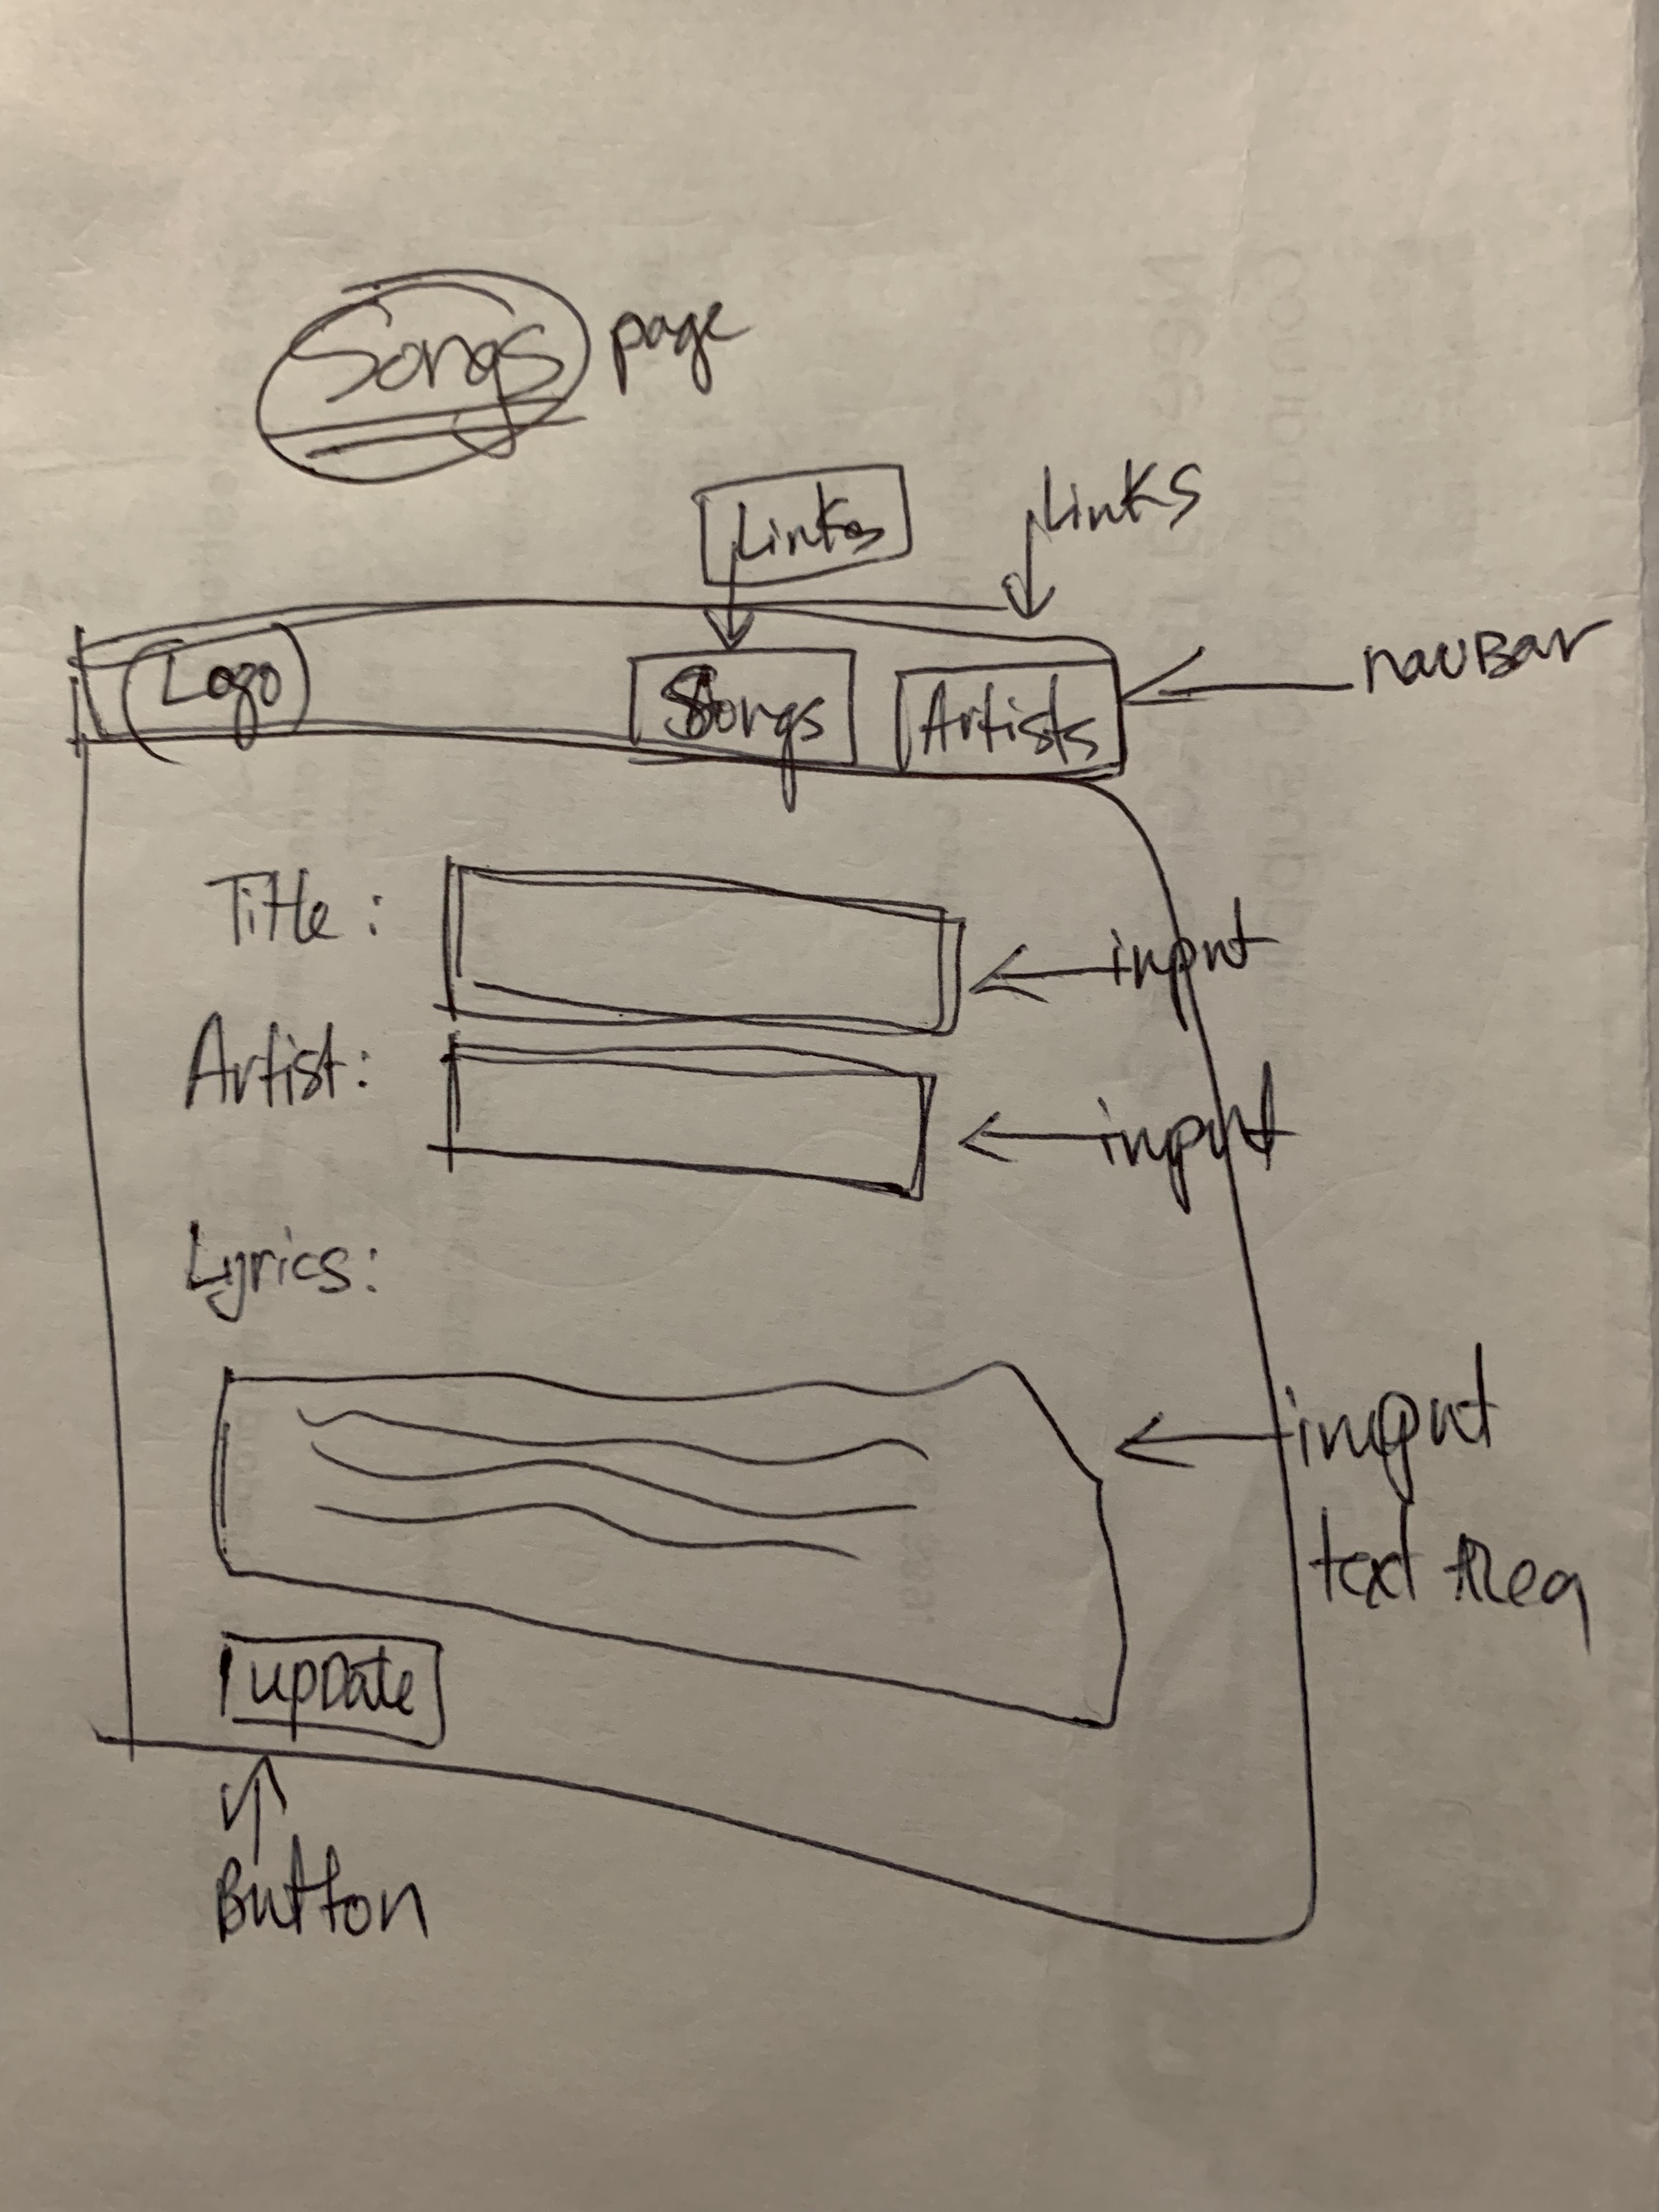 Songs page
Links
Links
Logo
Songs
Artists
navBar
Title:
input
Artist:
input
Lyrics:
input
text Area
upDate
Button